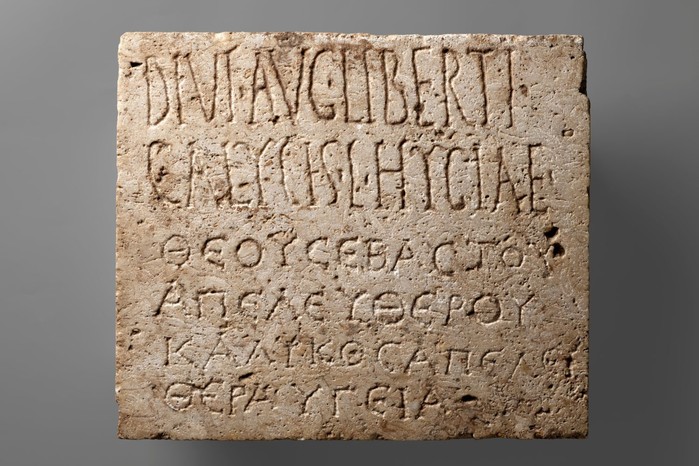 DIVI·AVG·LIBERTI
CALYCIS·L·HYGIAE
ΘΕΟΥ CΕΒΑCΤΟΥ
ΑΠΕΛΕΥΘΕΡΟΥ
ΚΑΛΥΚΟC ΑΠΕΛΕΥ
ΘΕΡΑ ΥΓΕΙΑ